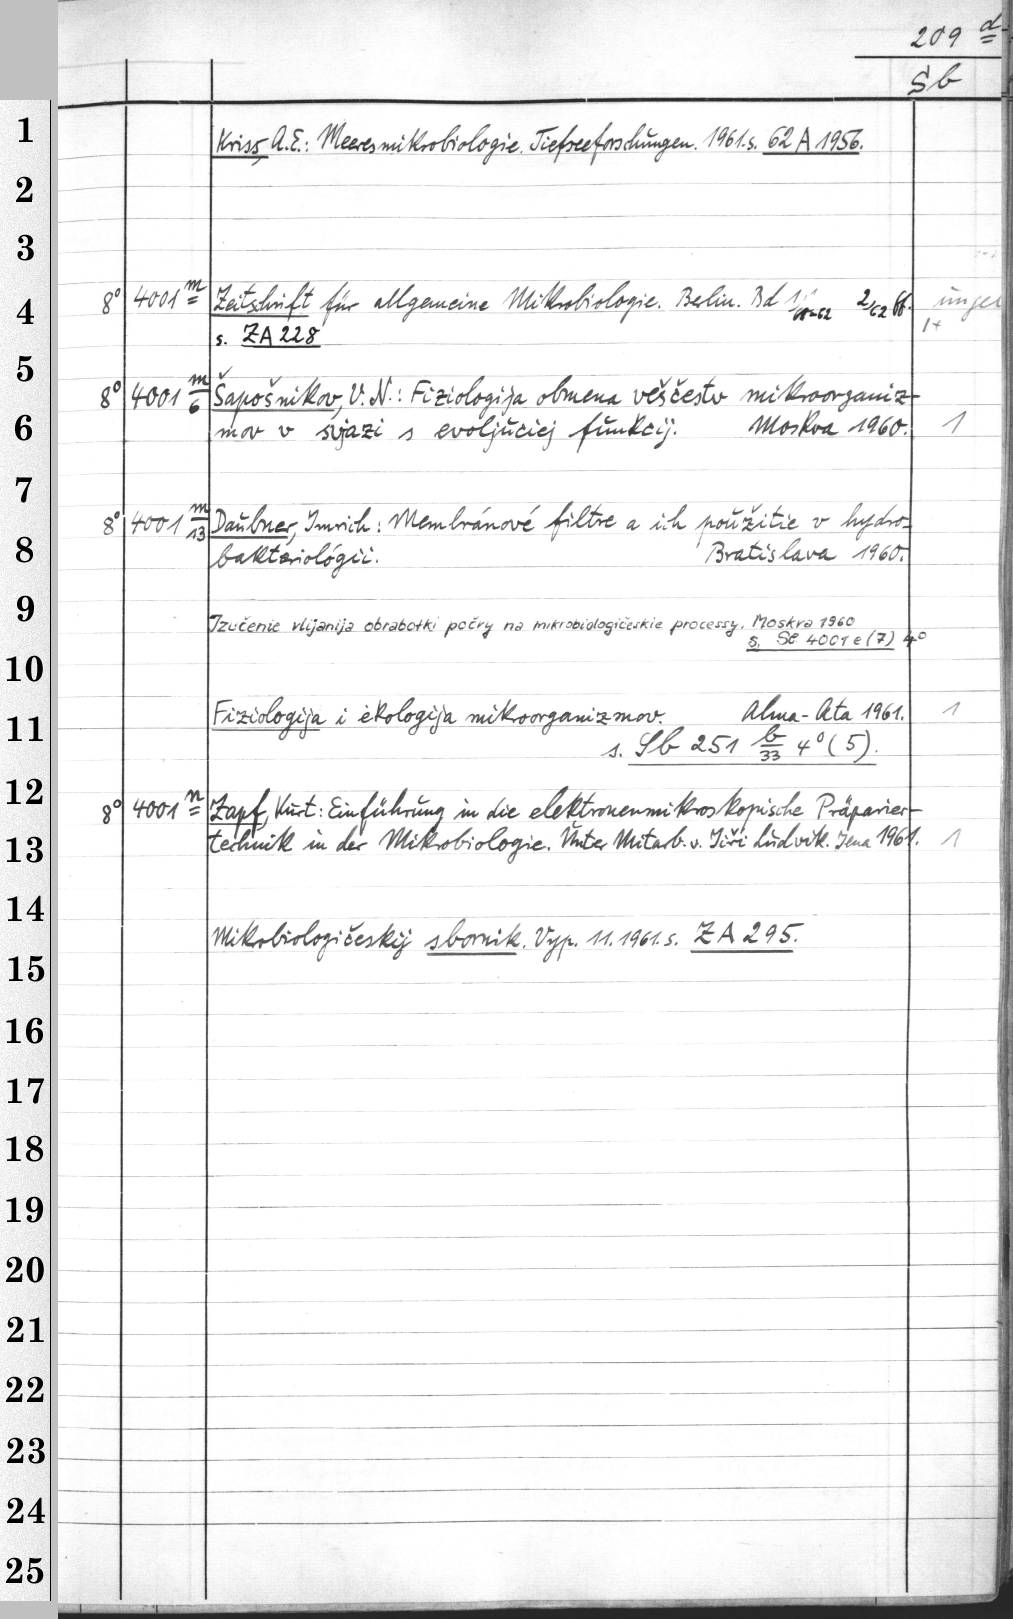 209 d
Sb
1
Kriss, A.E.: Meeresmikrobiologie. Tiefseeforschungen. 1961. s. 62 A 1956.
2
3
4
8° 4001 m Zeitschrift für allgemeine Mikrobiologie. Berlin. Bd 1/61-62 2/62 ff.
s. ZA 228 1+
5
8° 4001 m/6 Šapošnikov, V. N.: Fiziologija obmena veščestv mikroorganiz-
6 mov v svjazi s evoljuciej funkcij. Moskva 1960. 1
7
8° 4001 m/13 Daubner, Imrich: Membránové filtre a ich použitie v hydro-
8 bakteriológii. Bratislava 1960.
9
Izučenie vlijanija obrabotki počvy na mikrobiologičeskie processy. Moskva 1960
s. Se 4001 e (7) 4°
10
11 Fiziologija i ėkologija mikroorganizmov. Alma-Ata 1961. 1
s. Sb 251 b/33 4° (5).
12
8° 4001 n Zapf, Kurt: Einführung in die elektronenmikroskopische Präparier-
13 technik in der Mikrobiologie. Unter Mitarb. v. Jiři Ludvik. Jena 1961. 1
14
Mikrobiologičeskij sbornik. Vyp. 11. 1961. s. ZA 295.
15
16
17
18
19
20
21
22
23
24
25